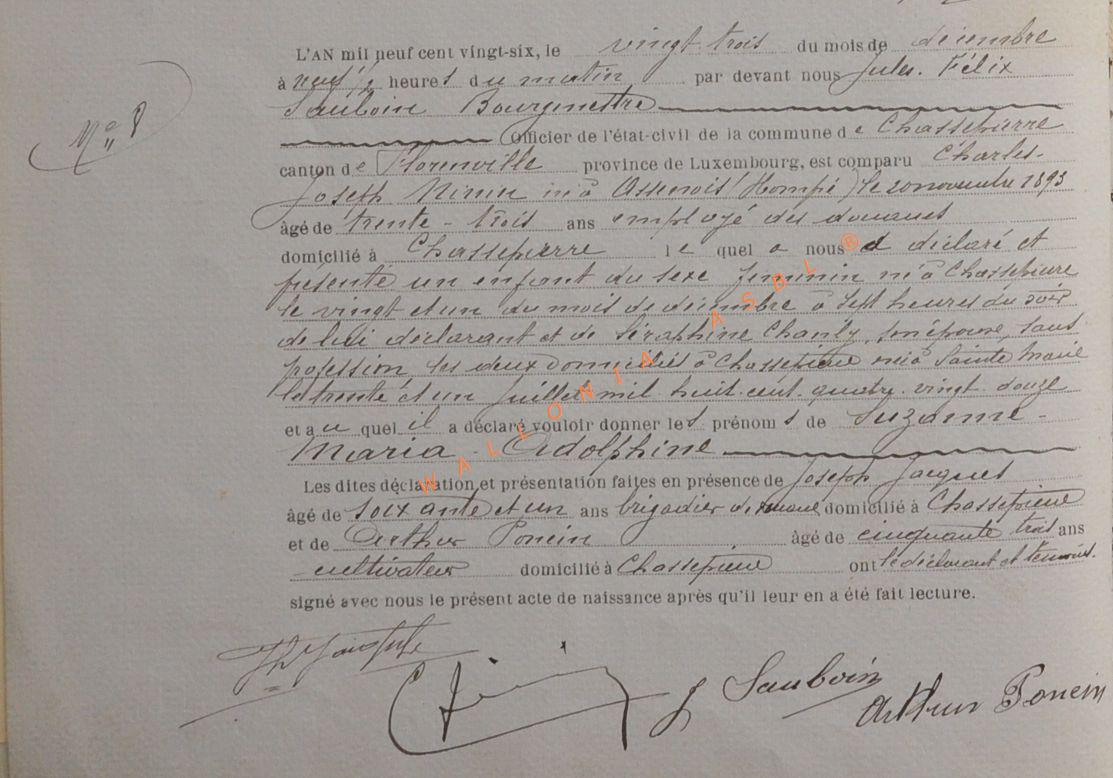 L'AN mil neuf cent vingt-six, le vingt trois du mois de décembre
à neuf 1/2 heures du matin par devant nous Jules. Félix
Sauboin Bourgmestre
Officier de l'état-civil de la commune de Chassepierre
N° 8
canton de Florenville province de Luxembourg, est comparu Charles-
Joseph né à Assenois (Hompré) le 20 novembre 1893
âgé de trente-trois ans employé des douanes
domicilié à Chassepierre le quel a nous déclaré et
présenté un enfant du sexe féminin né à Chassepierre
le vingt et un du mois de décembre à sept heures du soir
de lui déclarant et de Séraphine son épouse, sans
profession, les deux domiciliés à Chassepierre née à Sainte Marie
le trente et un Juillet mil huit cent quatre vingt douze
et au quel il a déclaré vouloir donner les prénoms de Suzanne-
Maria-Adolphine
Les dites déclaration et présentation faites en présence de Joseph Jacquet
âgé de soixante et un ans brigadier de domicilié à Chassepierre
et de Arthur Poncin âgé de cinquante trois ans
cultivateur domicilié à Chassepierre ont le déclarant et témoins.
signé avec nous le présent acte de naissance après qu'il leur en a été fait lecture.
J Sauboin
Arthur Poncin
WALLONIA ASBL ®